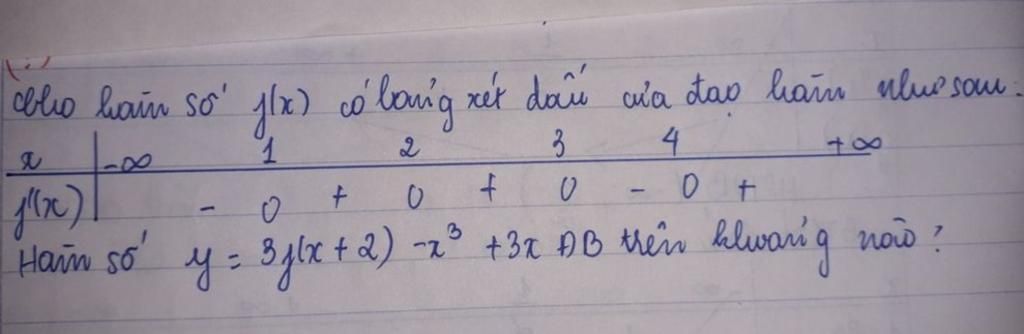 Cho hàm số f(x) có bảng xét dấu của đạo hàm như sau:
x | -∞ 1 2 3 4 +∞
f'(x) | - 0 + 0 + 0 - 0 +
Hàm số y = 3f(x+2) - x³ + 3x ĐB trên khoảng nào?